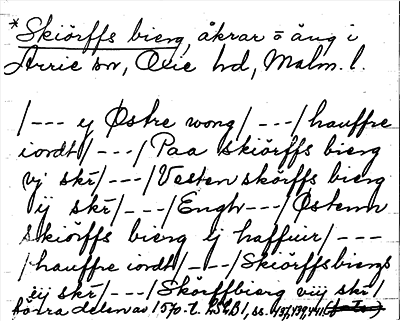 *Skiörffs bierg, åkrar o äng i
Arrie sn, Oxie hd, Malm. l.
/--- ij Østre wong/---/hauffre
iordt/---/Paa skiörffs bierg
vj skr/---/Vesten skörffs bierg
ij skr/---/Engh---/Østenn
skiörffs bierg ij haffuir/---
/hauffre iordt/---/Skiörffsbiergs
iij skr/---/Skörffbierg viij skr/
förra delen av 1570-t.